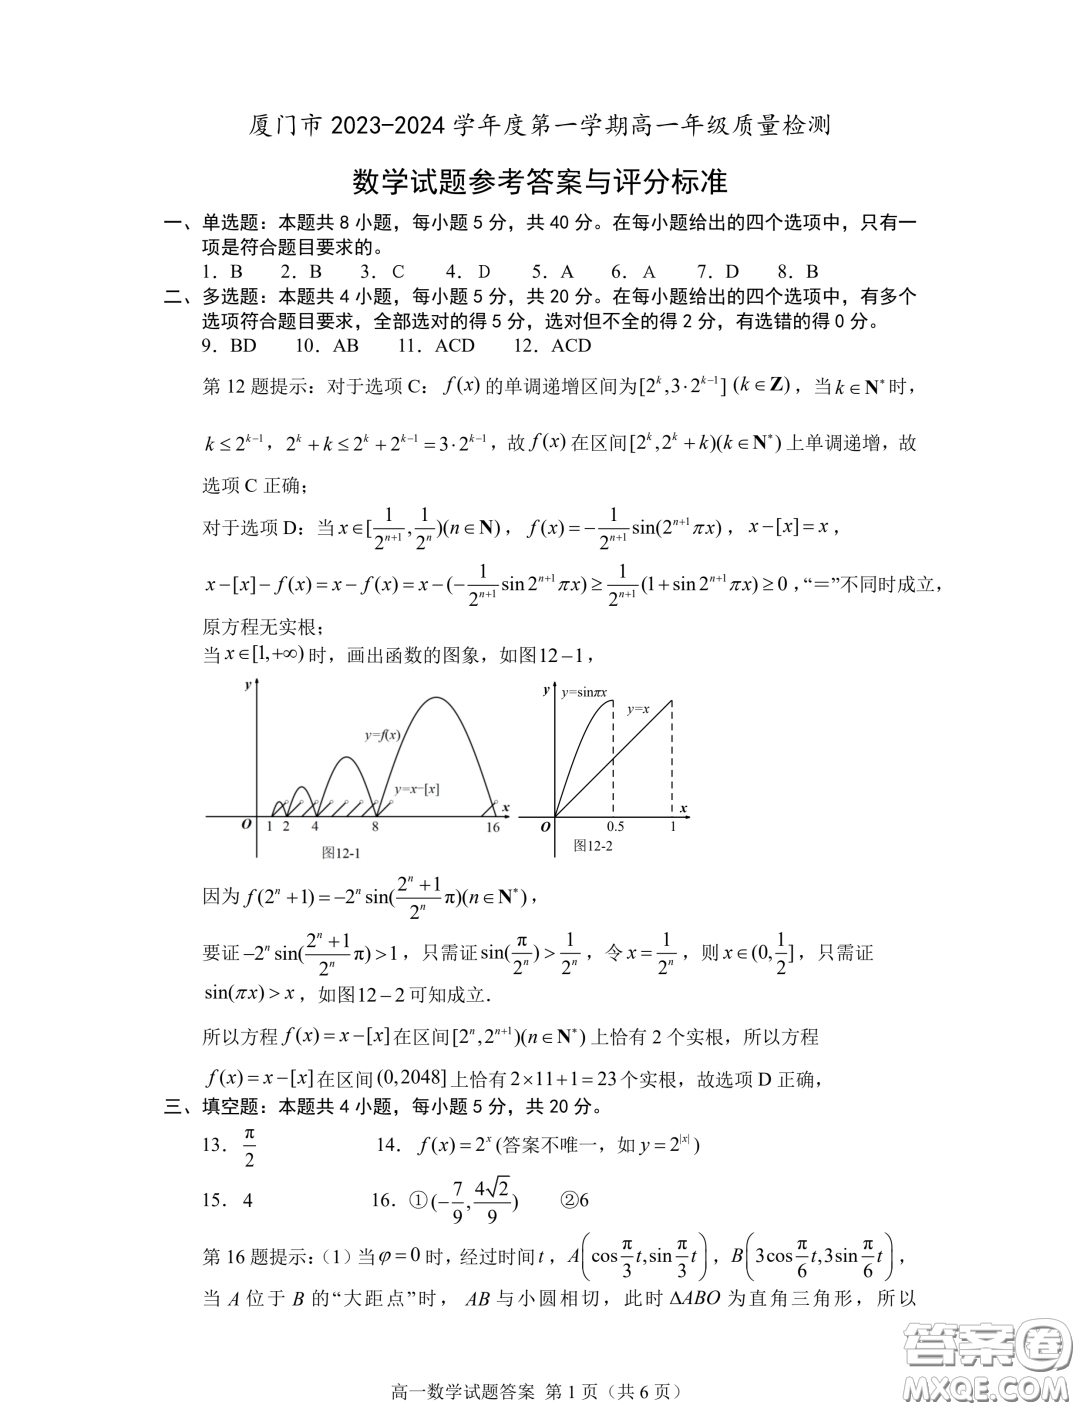 厦门市 2023-2024 学年度第一学期高一年级质量检测
数学试题参考答案与评分标准
一、单选题：本题共 8 小题，每小题 5 分，共 40 分。在每小题给出的四个选项中，只有一
项是符合题目要求的。
1．B 2．B 3．C 4．D 5．A 6．A 7．D 8．B
二、多选题：本题共 4 小题，每小题 5 分，共 20 分。在每小题给出的四个选项中，有多个
选项符合题目要求，全部选对的得 5 分，选对但不全的得 2 分，有选错的得 0 分。
9．BD 10．AB 11．ACD 12．ACD
第 12 题提示：对于选项 C： f(x) 的单调递增区间为 [2^k,3·2^{k−1}] (k∈Z)，当 k∈N* 时，
k≤2^{k−1}，2^k+k≤2^k+2^{k−1}=3·2^{k−1}，故 f(x) 在区间 [2^k,2^k+k)(k∈N*) 上单调递增，故
选项 C 正确；
对于选项 D：当 x∈[1/2^{n+1},1/2^n)(n∈N)，f(x)=−1/2^{n+1} sin(2^{n+1}πx)，x−[x]=x，
x−[x]−f(x)=x−f(x)=x−(−1/2^{n+1} sin2^{n+1}πx)≥1/2^{n+1}(1+sin2^{n+1}πx)≥0，“＝”不同时成立，
原方程无实根；
当 x∈[1,+∞) 时，画出函数的图象，如图12−1，
y
y=f(x)
y=x−[x]
x
O 1 2 4 8 16
图12-1
y
y=sinπx
y=x
x
O 0.5 1
图12-2
因为 f(2^n+1)=−2^n sin((2^n+1)/2^n π)(n∈N*)，
要证 −2^n sin((2^n+1)/2^n π)>1，只需证 sin(π/2^n)>1/2^n，令 x=1/2^n，则 x∈(0,1/2]，只需证
sin(πx)>x，如图12−2可知成立．
所以方程 f(x)=x−[x] 在区间 [2^n,2^{n+1})(n∈N*) 上恰有 2 个实根，所以方程
f(x)=x−[x] 在区间 (0,2048] 上恰有 2×11+1=23 个实根，故选项 D 正确，
三、填空题：本题共 4 小题，每小题 5 分，共 20 分。
13．π/2 14．f(x)=2^x (答案不唯一，如 y=2^{|x|})
15．4 16．①(−7/9,4√2/9) ②6
第 16 题提示：（1）当 φ=0 时，经过时间 t，A(cos π/3 t,sin π/3 t)，B(3cos π/6 t,3sin π/6 t)，
当 A 位于 B 的“大距点”时， AB 与小圆相切，此时 ΔABO 为直角三角形，所以
答案圈
MXQE.COM
高一数学试题答案 第 1 页（共 6 页）